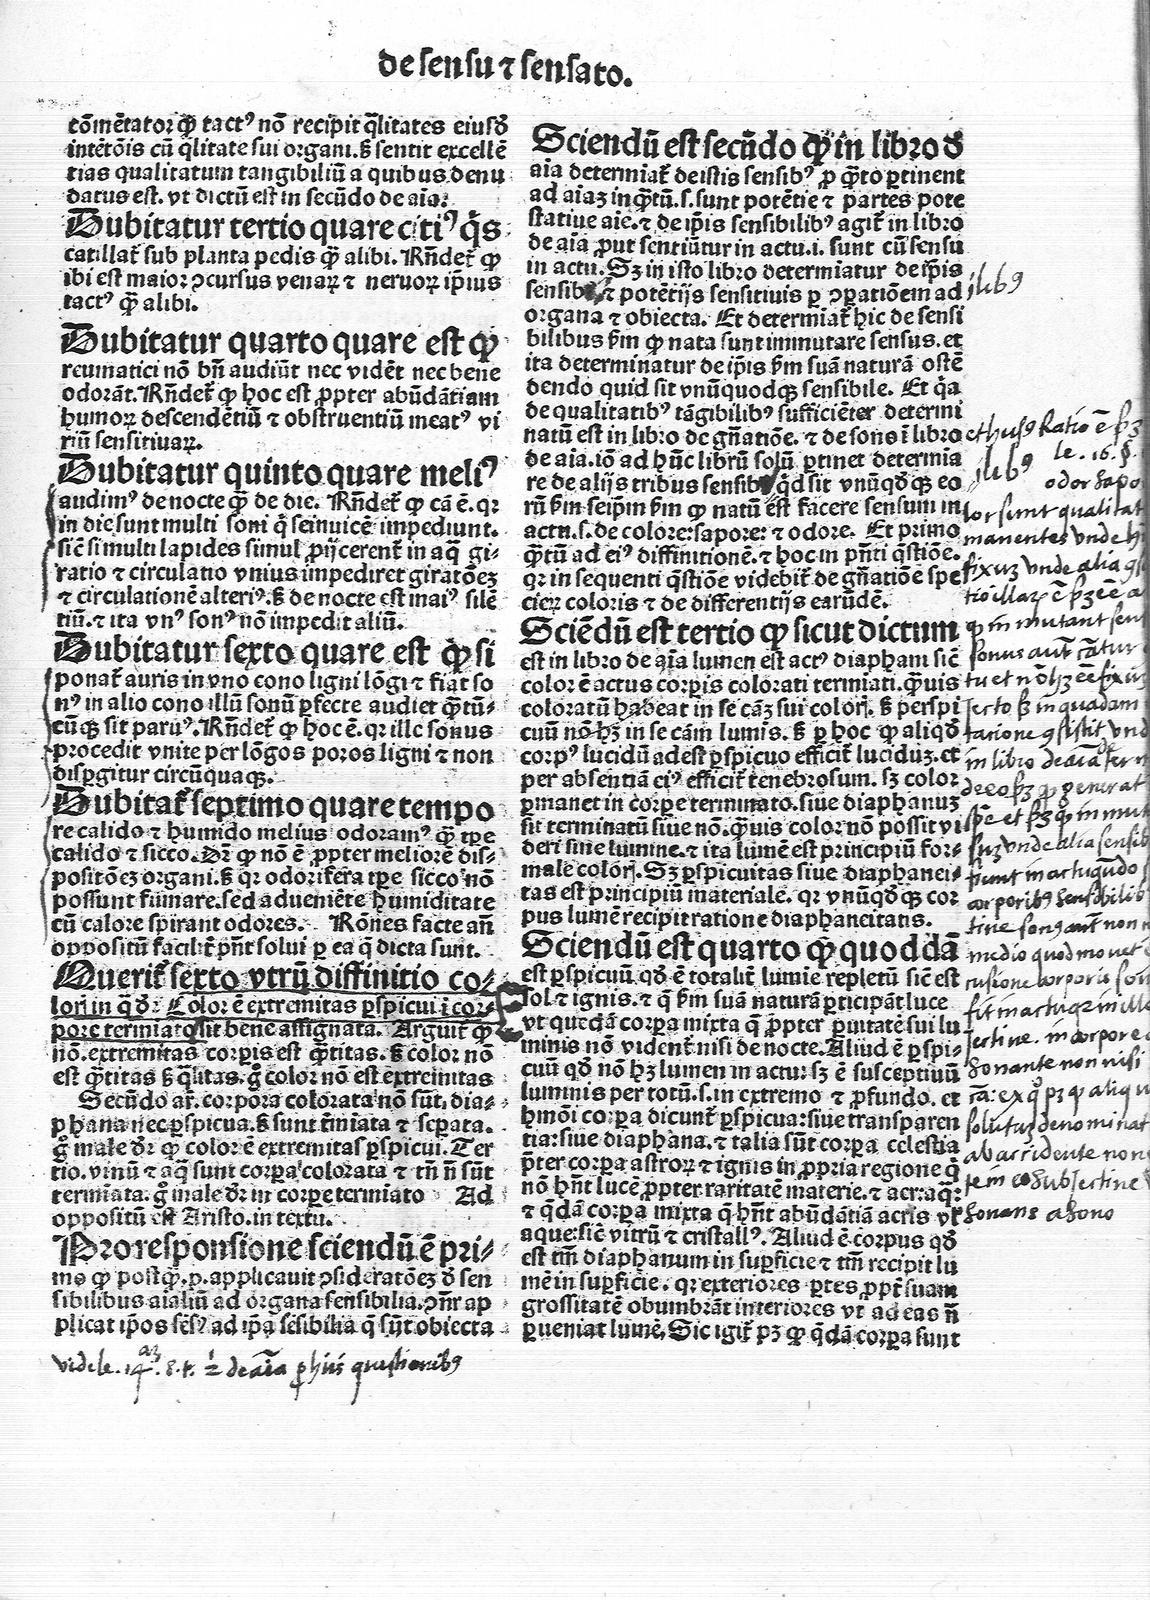 de sensu ⁊ sensato.
cōmētator ꝙ tactꝰ nō recipit q̄litates eiusdē
intētōis cū q̄litate sui organi. s̄ sentit excellē
tias qualitatum tangibiliū a quibus denu
datus est. vt dictū est in secūdo de aīa.
Dubitatur tertio quare citiꝰ q̄s
catillat̄ sub planta pedis q̄ꝫ alibi. Rn̄det̄ ꝙ
ibi est maior ꝯcursus venaꝝ ⁊ neruoꝝ ip̄ius
tactꝰ q̄ꝫ alibi.
Dubitatur quarto quare est ꝙ
reumatici nō bn̄ audiūt nec vidēt nec bene
odorāt. Rn̄det̄ ꝙ hoc est ꝓpter abūdātiam
humoꝝ descendētiū ⁊ obstruentiū meatꝰ vi
riū sensitiuaꝝ.
Dubitatur quinto quare meliꝰ
audimꝰ de nocte q̄ꝫ de die. Rn̄det̄ ꝙ cā ē. qꝛ
in die sunt multi soni q̄ seinuicē impediunt.
sic̄ si multi lapides simul ꝓijcerent̄ in aq̄ gi-
ratio ⁊ circulatio vnius impediret giratōeꝫ
⁊ circulationē alteriꝰ. s̄ de nocte est maiꝰ silē
tiū. ⁊ ita vnꝰ sonꝰ nō impedit aliū.
Dubitatur sexto quare est ꝙ si
ponat̄ auris in vno cono ligni lōgi ⁊ fiat so
nꝰ in alio cono illū sonū ꝑfecte audiet q̄ꝫtū-
cūqꝫ sit paruꝰ. Rn̄det̄ ꝙ hoc ē. qꝛ ille sonus
procedit vnite per lōgos poros ligni ⁊ non
dispgitur circūquaqꝫ.
Dubitat̄ septimo quare tempo
re calido ⁊ humido melius odoramꝰ q̄ꝫ tpe
calido ⁊ sicco. Dr̄ ꝙ nō ē ꝓpter meliorē dis-
positōeꝫ organi. s̄ qꝛ odorifera tp̄e sicco nō
possunt fumare. sed adueniēte humiditate
cū calore spirant odores. Rōnes facte an̄
oppositū facilit̄ pn̄t solui ꝑ ea q̄ dicta sunt.
Querit̄ sexto vtrū diffinitio co-
loris in q̄ dr̄: Color ē extremitas ꝑspicui ī cor-
pore termiato sit bene assignata. Arguit̄ ꝙ
nō. extremitas corpis est q̄ꝫtitas. s̄ color nō
est q̄ꝫtitas s̄ q̄litas. gͦ color nō est extremitas
Secūdo ar̄. corpora colorata nō sūt dia-
phana nec ꝑspicua. s̄ sunt t̄miata ⁊ sepata.
gͦ male dr̄ ꝙ color ē extremitas ꝑspicui. Ter
tio. vinū ⁊ aq̄ sunt corpa colorata ⁊ tn̄ n̄ sūt
termiata. gͦ male dr̄ in corpe termiato Ad
oppositū est Aristo. in textu.
Pro responsione sciendū ē pri-
mo ꝙ postq̄ꝫ. p. applicauit ꝯsideratōeꝫ d̄ sen
sibilibus aīaliū ad organa sensibilia. ꝯn̄r ap
plicat ip̄os sēsꝰ ad ip̄a sēsibilia q̄ sūt obiecta
vide le. 14. 8. t. 2 de aīa ꝓ hijs questionibꝰ
Sciendū est secūdo ꝙ in libro d̄
aīa determiat̄ de istis sensibꝰ ꝓ q̄ꝫto ꝑtinent
ad aīaꝫ inq̄ꝫtū. s. sunt potētie ⁊ partes pote
statiue aīe. ⁊ de ip̄is sensibilibꝰ agit̄ in libro
de aīa ꝓut sentiūtur in actu. i. sunt cū sensu
in actu. Sꝫ in isto libro determiatur de ip̄is
sensibꝰ ⁊ potētijs sensitiuis ꝑ ꝯpationem ad
organa ⁊ obiecta. Et determiat̄ hic de sensi
bilibus ẜm ꝙ nata sunt immutare sensus. et
ita determinatur de ip̄is ẜm suā naturā ostē
dendo quid sit vnūquodqꝫ sensibile. Et q̄a
de qualitatibꝰ tāgibilibꝰ sufficiēter determi
natū est in libro de gn̄atiōe. ⁊ de sono ī libro
de aīa. iō ad hūc librū solū ꝑtinet determia
re de alijs tribus sensibꝰ qd̄ sit vnūqd̄qꝫ eo
rū ẜm seip̄m ẜm ꝙ natū est facere sensum in
actu. s. de colore: sapore: ⁊ odore. Et primo
q̄ꝫtū ad eiꝰ diffinitionē. ⁊ hoc in pn̄ti q̄stiōe.
qꝛ in sequenti q̄stiōe videbit̄ de gn̄atiōe spe
cieꝝ coloris ⁊ de differentijs earūdē.
Sciēdū est tertio ꝙ sicut dictum
est in libro de aīa lumen est actꝰ diaphani sic̄
color ē actus corpis colorati termiati. q̄ꝫuis
coloratū habeat in se cāꝫ sui coloris. s̄ perspi
cuū nō hꝫ in se cām lumis. s̄ ꝑ hoc ꝙ aliqd̄
corpꝰ lucidū adest ꝑspicuo efficit̄ lucidūꝫ. et
per absentiā eiꝰ efficit̄ tenebrosum. sꝫ color
ꝑmanet in corpe terminato. siue diaphanuꝫ
sit terminatū siue nō. q̄ꝫuis color nō possit vi
deri sine lumine. ⁊ ita lumē est principiū for-
male coloris. Sꝫ ꝑspicuitas siue diaphanei-
tas est principiū materiale. qꝛ vnūqd̄qꝫ cor
pus lumē recipit ratione diaphaneitatis.
Sciendū est quarto ꝙ quoddā
est ꝑspicuū qd̄ ē totalit̄ lumie repletū sic̄ est
sol ⁊ ignis. ⁊ q̄ ẜm suā naturā ꝑticipāt luce
vt quedā corpa mixta q̄ ꝓpter ꝑuitatē sui lu
minis nō vident̄ nisi de nocte. Aliud ē ꝑspi-
cuū qd̄ nō hꝫ lumen in actu: sꝫ ē susceptiuū
luminis per totū. s. in extremo ⁊ ꝓfundo. et
hmōi corpa dicunt̄ ꝑspicua: siue transparen
tia: siue diaphana. ⁊ talia sūt corpa celestia
p̄ter corpa astroꝝ ⁊ ignis in ꝓpria regione q̄
nō hn̄t lucē ꝓpter raritatē materie. ⁊ aer: aq̄:
⁊ q̄dā corpa mixta q̄ hn̄t abūdātiā aeris vꝉ
aque: sic̄ vitrū ⁊ cristallꝰ. Aliud ē corpus qd̄
est tm̄ diaphanum in supficie ⁊ tm̄ recipit lu
mē in supficie. qꝛ exteriores ꝑtes ꝓpt̄ suam
grossitatē obumbrāt interiores vt ad eas n̄
ꝑueniat lumē. Sic igit̄ pꝫ ꝙ q̄dā corpa sunt
ilibꝰ
ethuiꝰ Ratio ē
le. 16.
ilibꝰ
odor sapo
lor sunt qualitat
manentes vnde
fixuꝫ vnde alia
ꝙ inmutant sen
sonus aut
in quadam
in libro de aīa
generat
vnde alia sensib
corporibꝰ sensibilib
medio quod mouet
corporis
in corpore
sonante non nisi
denominat
ab accidente non
sonans a sono